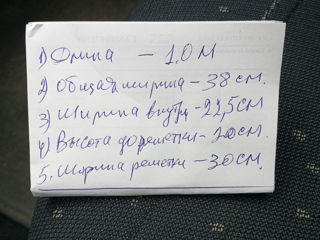 1) Длина — 1,0 м
2) Общая ширина – 38 см.
3) Ширина внутр – 22,5 см
4) Высота до решетки – 20 см.
5. Ширина решетки – 30 см.